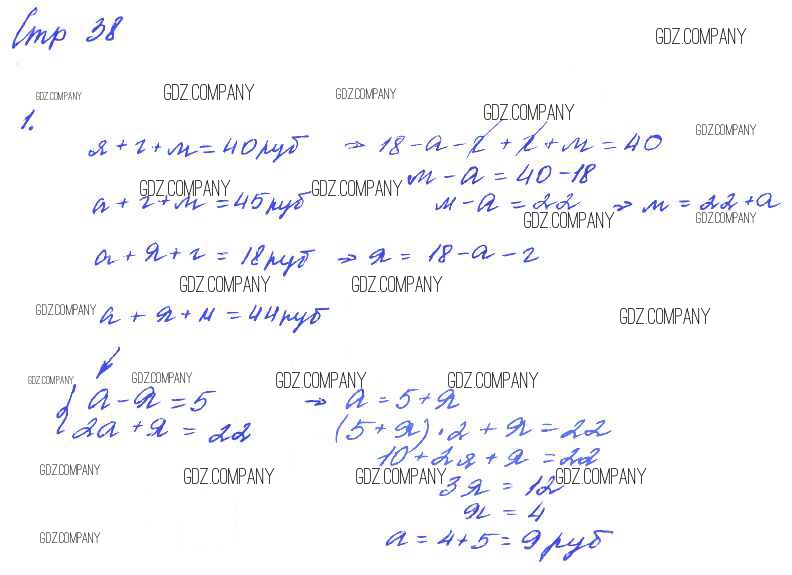 Стр 38
GDZ.COMPANY
GDZ.COMPANY GDZ.COMPANY GDZ.COMPANY
GDZ.COMPANY
GDZ.COMPANY
1.
я + г + м = 40 руб => 18 - а - г + г + м = 40
м - а = 40 - 18
GDZ.COMPANY GDZ.COMPANY
а + г + м = 45 руб м - а = 22 => м = 22 + а
GDZ.COMPANY GDZ.COMPANY
а + я + г = 18 руб => я = 18 - а - г
GDZ.COMPANY GDZ.COMPANY
GDZ.COMPANY GDZ.COMPANY
а + я + м = 44 руб
GDZ.COMPANY GDZ.COMPANY GDZ.COMPANY GDZ.COMPANY
{ а - я = 5 => а = 5 + я
2а + я = 22 (5 + я) · 2 + я = 22
10 + 2я + я = 22
GDZ.COMPANY GDZ.COMPANY GDZ.COMPANY GDZ.COMPANY
3я = 12
я = 4
GDZ.COMPANY
а = 4 + 5 = 9 руб